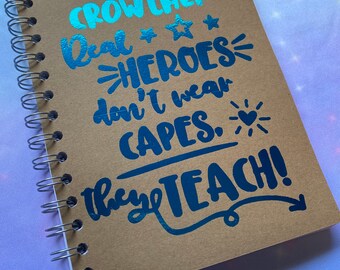 Real
HEROES
don't wear
CAPES,
they TEACH!